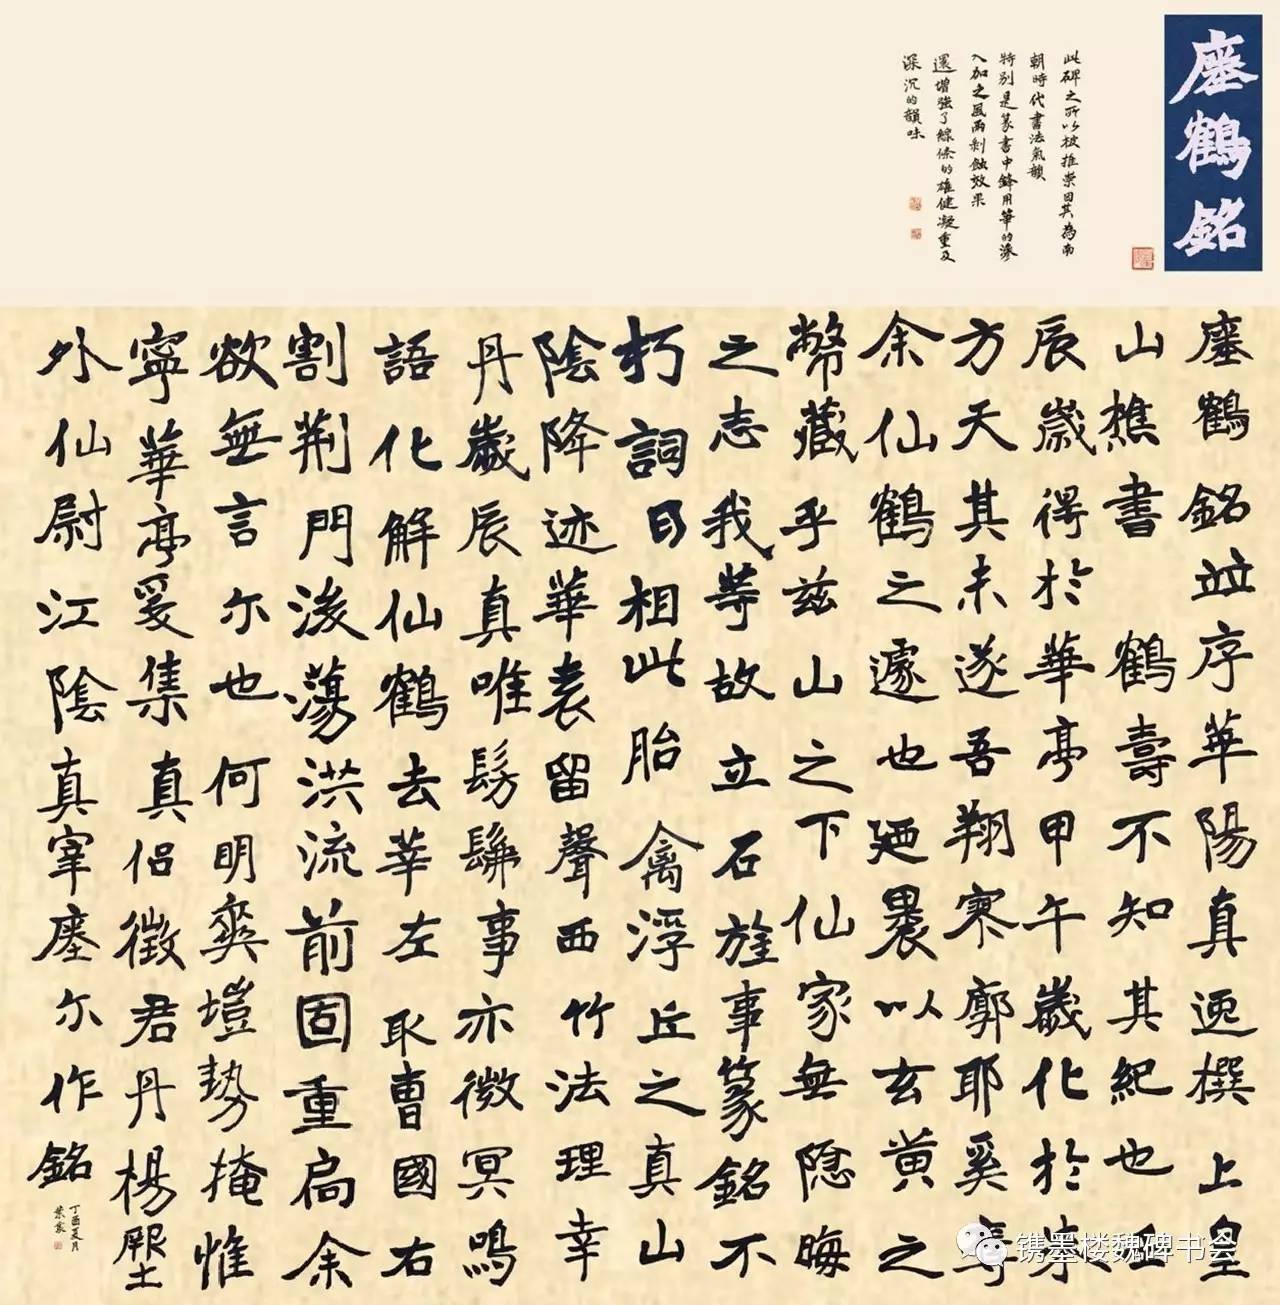 瘞鶴銘
此碑之所以被推崇因其為南
朝時代書法氣韻
特別是篆書中鋒用筆的滲
入加之風雨剝蝕效果
還增強了線條的雄健凝重及
深沉的韻味
瘞鶴銘並序華陽真逸撰上皇
山樵書 鶴壽不知其紀也壬
辰歲得於華亭甲午歲化於朱
方天其未遂吾翔寥廓耶奚奪
余仙鶴之遽也迺裹以玄黄之
幣藏乎茲山之下仙家無隱晦
之志我等故立石旌事篆銘不
朽詞曰相此胎禽浮丘之真山
陰降迹華表留聲西竹法理幸
丹歲辰真唯髣髴事亦微冥鳴
語化解仙鶴去莘左取曹國右
割荆門後蕩洪流前固重扃余
欲無言尔也何明爽塏勢掩惟
寧華亭爰集真侣徵君丹楊
外仙尉江陰真宰瘞尔作銘
丁酉夏月
镌墨楼魏碑书会